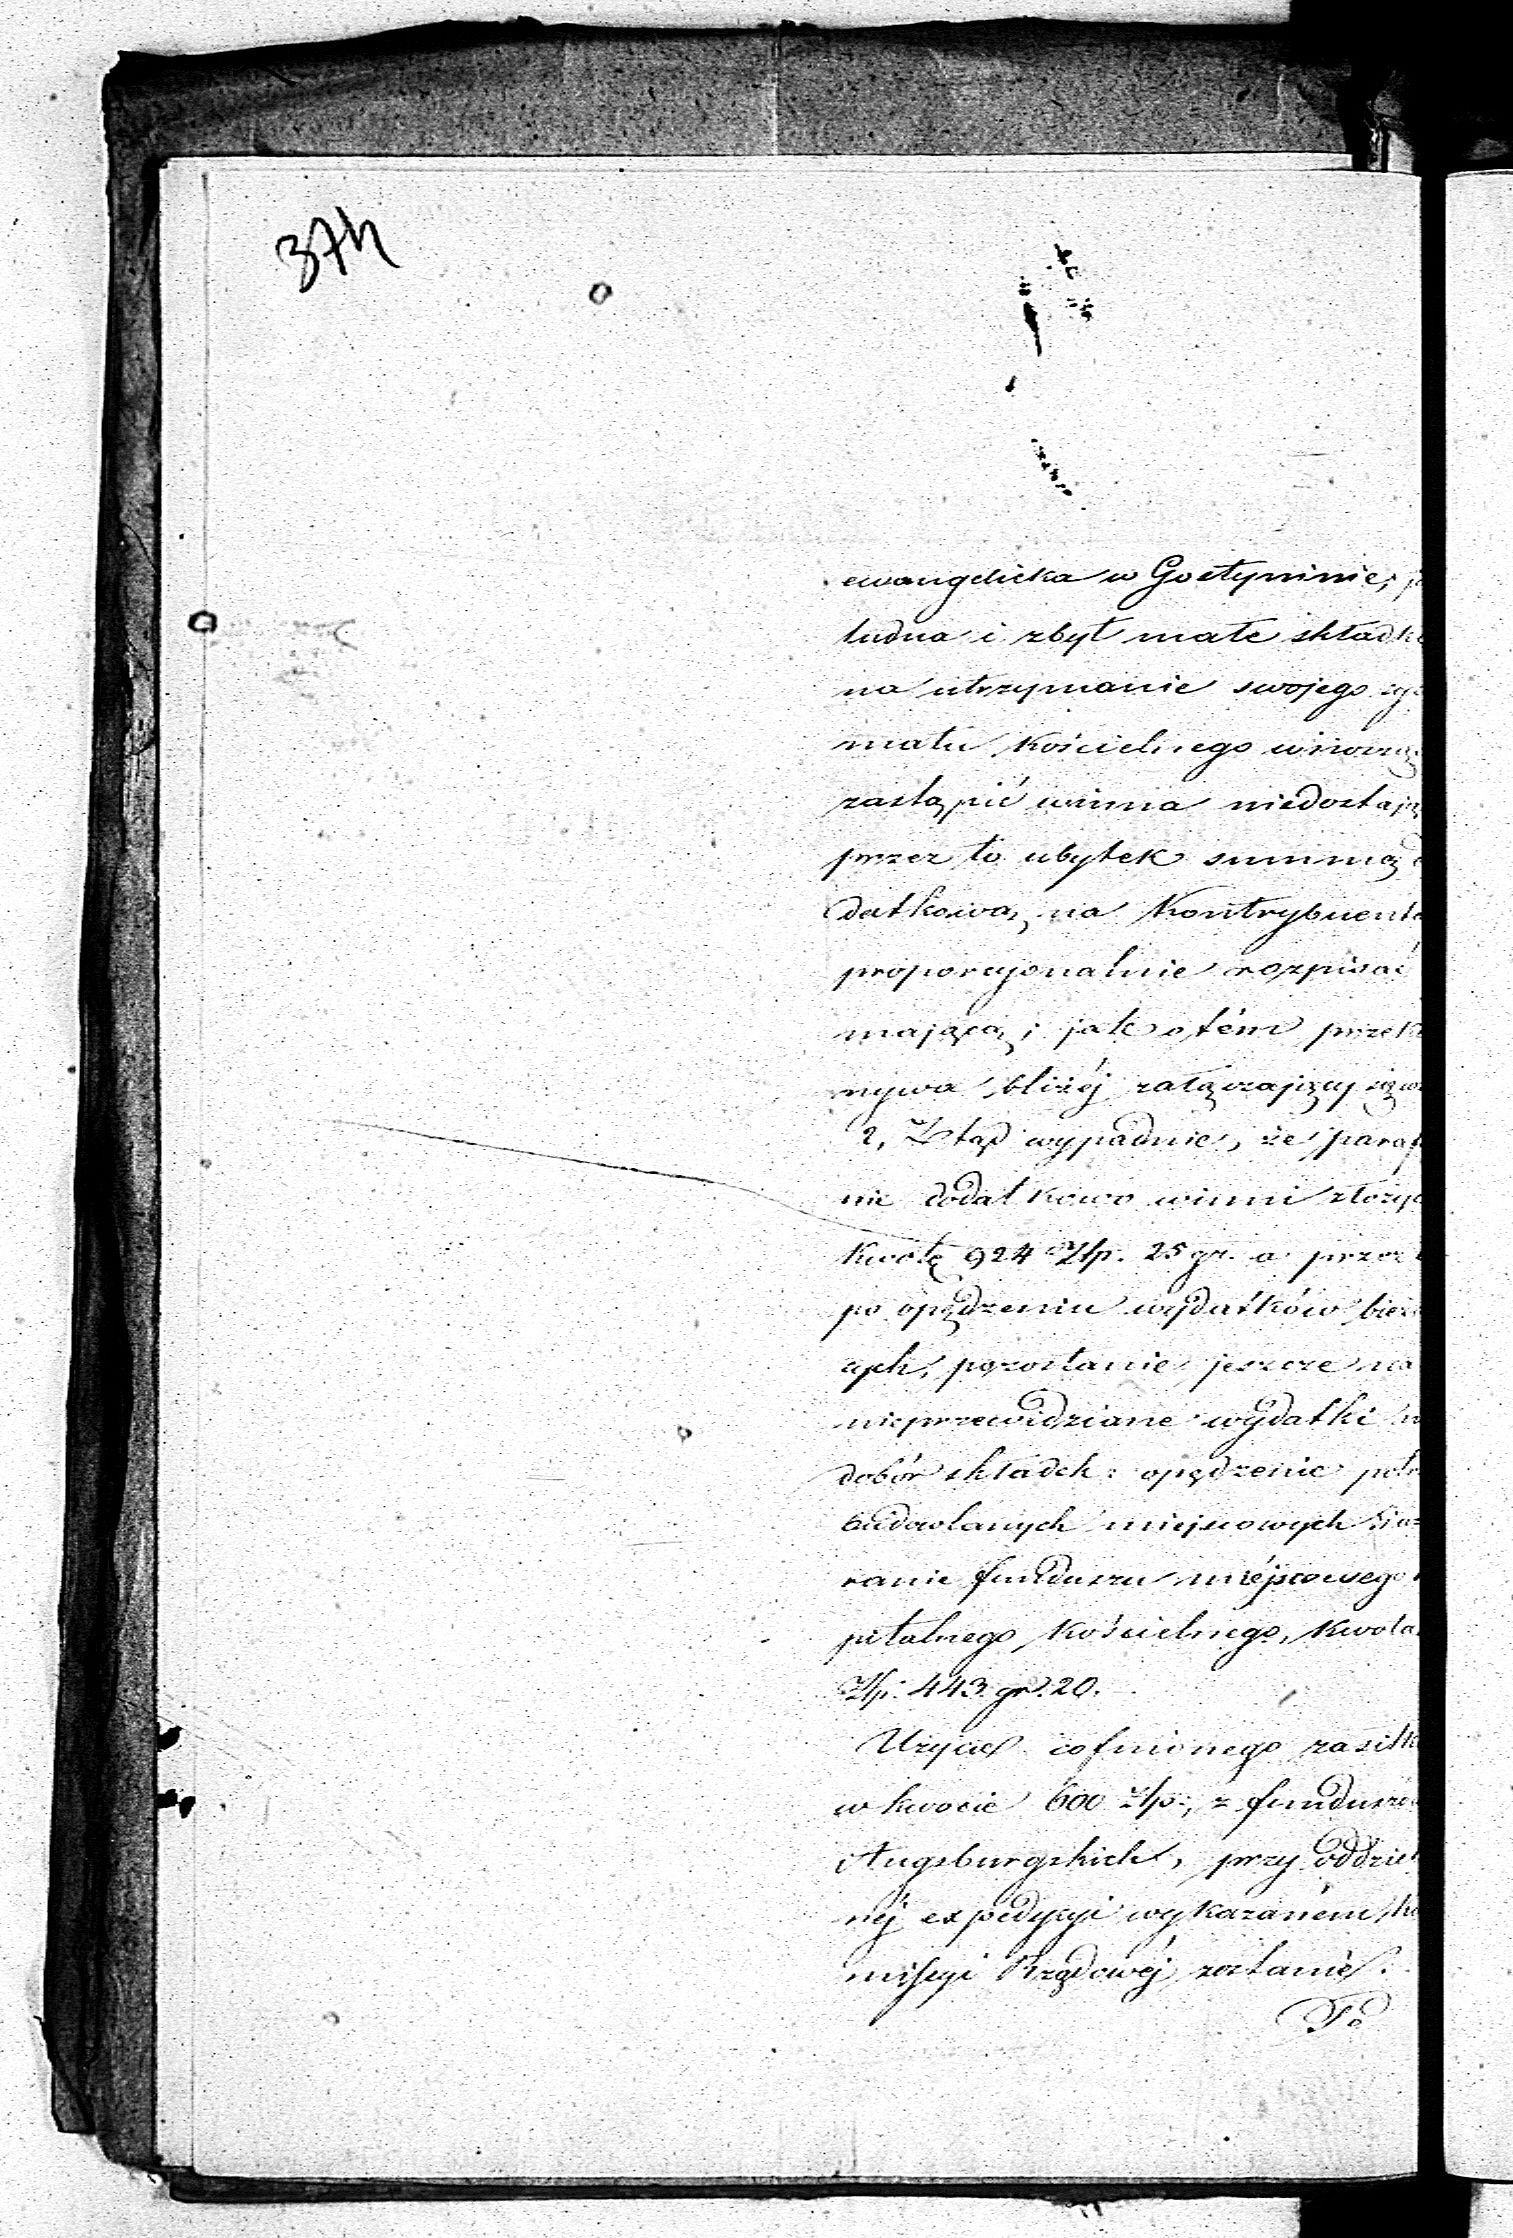 374
ewangelicka w Gostyninie, j
ludna i zbyt małe składk
na utrzymanie swojego
matu kościelnego wnosząc
zastąpić winna niedostają
przez to ubytek summą
datkową na Kontrybuent
proporcyonalnie rozpisać
mającą; jak o tém przek
nywa bliżéj załączający się w
2, Ztąd wypadnie, że paraf
nie dodatkowo winni złoży
kwotę 924 Złp. 25 gr. a przez
po opędzeniu wydatków bież
cych, pozostanie jeszcze na
nieprzewidziane wydatki n
dobór składek: opędzenie potr
budowlanych miejscowych i
ranie funduszu miéjscowego
pitalnego, kościelnego, kwota
Złp. 443 gr. 20.
Użycie cofnionego zasiłk
w kwocie 600 Złp., z fundusz
Augsburgskich, przy oddziel
néj expedycyi wykazaném, ko
missyi Rządowéj zostanie.